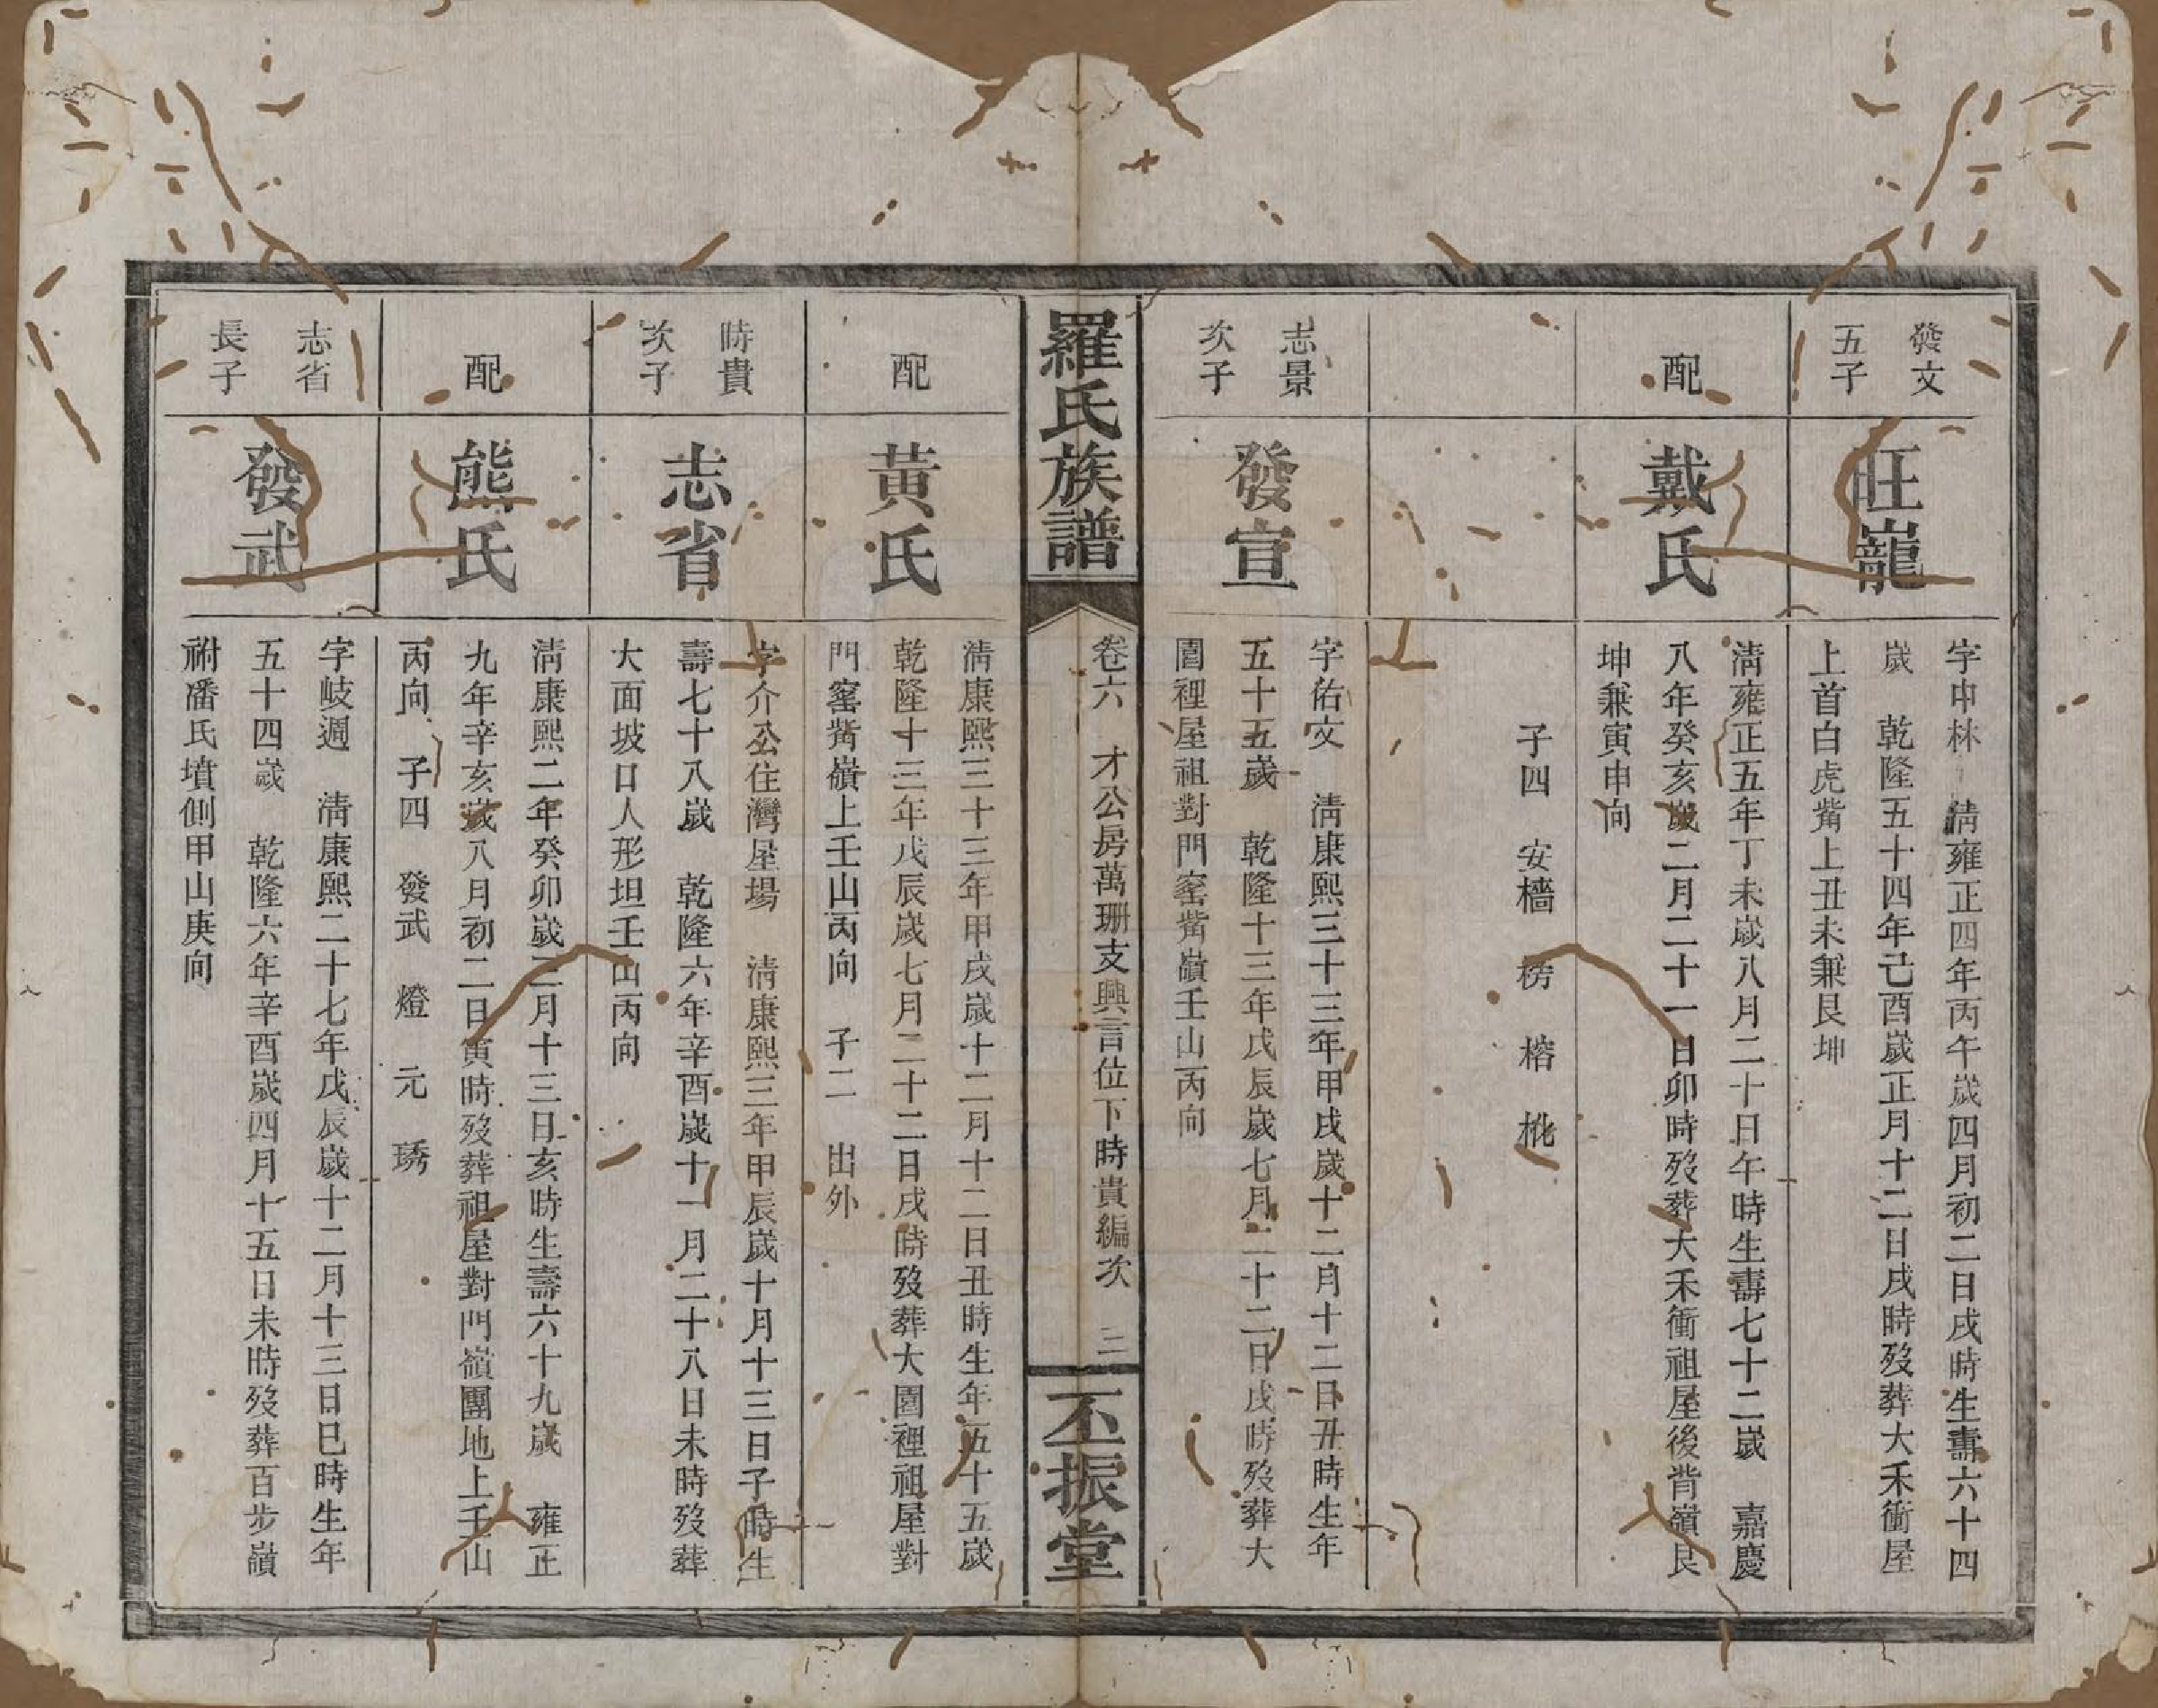 發文
五子
旺巃
字中林　清雍正四年丙午歲四月初二日戌時生壽六十四
歲　乾隆五十四年己酉歲正月十二日戌時歿葬大禾衝屋
上首白虎觜上丑未兼艮坤
配
戴氏
清雍正五年丁未歲八月二十日午時生壽七十二歲　嘉慶
八年癸亥歲二月二十一日卯時歿葬大禾衝祖屋後背嶺艮
坤兼寅申向
子四　安檣　榜　榕　桃
志景
次子
發宣
字佑文　清康熙三十三年甲戌歲十二月十二日丑時生年
五十五歲　乾隆十三年戊辰歲七月二十二日戌時歿葬大
園裡屋祖對門窰觜嶺壬山丙向
羅氏族譜
卷六　才公房萬珊支興言位下時貴編次　三
丕振堂
配
黃氏
清康熙三十三年甲戌歲十二月十二日丑時生年五十五歲
乾隆十三年戊辰歲七月二十二日戌時歿葬大園裡祖屋對
門窰觜嶺上壬山丙向　子二　出外
時貴
次子
志省
字介公住灣屋場　清康熙三年甲辰歲十月十三日子時生
壽七十八歲　乾隆六年辛酉歲十一月二十八日未時歿葬
大面坡口人形坦壬山丙向
配
熊氏
清康熙二年癸卯歲三月十三日亥時生壽六十九歲　雍正
九年辛亥歲八月初二日寅時歿葬祖屋對門嶺團地上壬山
丙向　子四　發武　燈　元　琇
志省
長子
發武
字岐週　清康熙二十七年戊辰歲十二月十三日巳時生年
五十四歲　乾隆六年辛酉歲四月十五日未時歿葬百步嶺
祔潘氏墳側甲山庚向